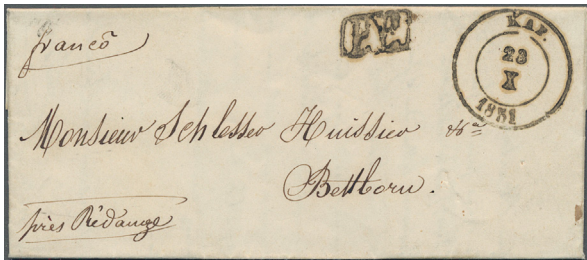 francô
P.P.
KAP.
23
X
1851
Monsieur Schlesser Huissier &a
Bettborn.
près Rédange